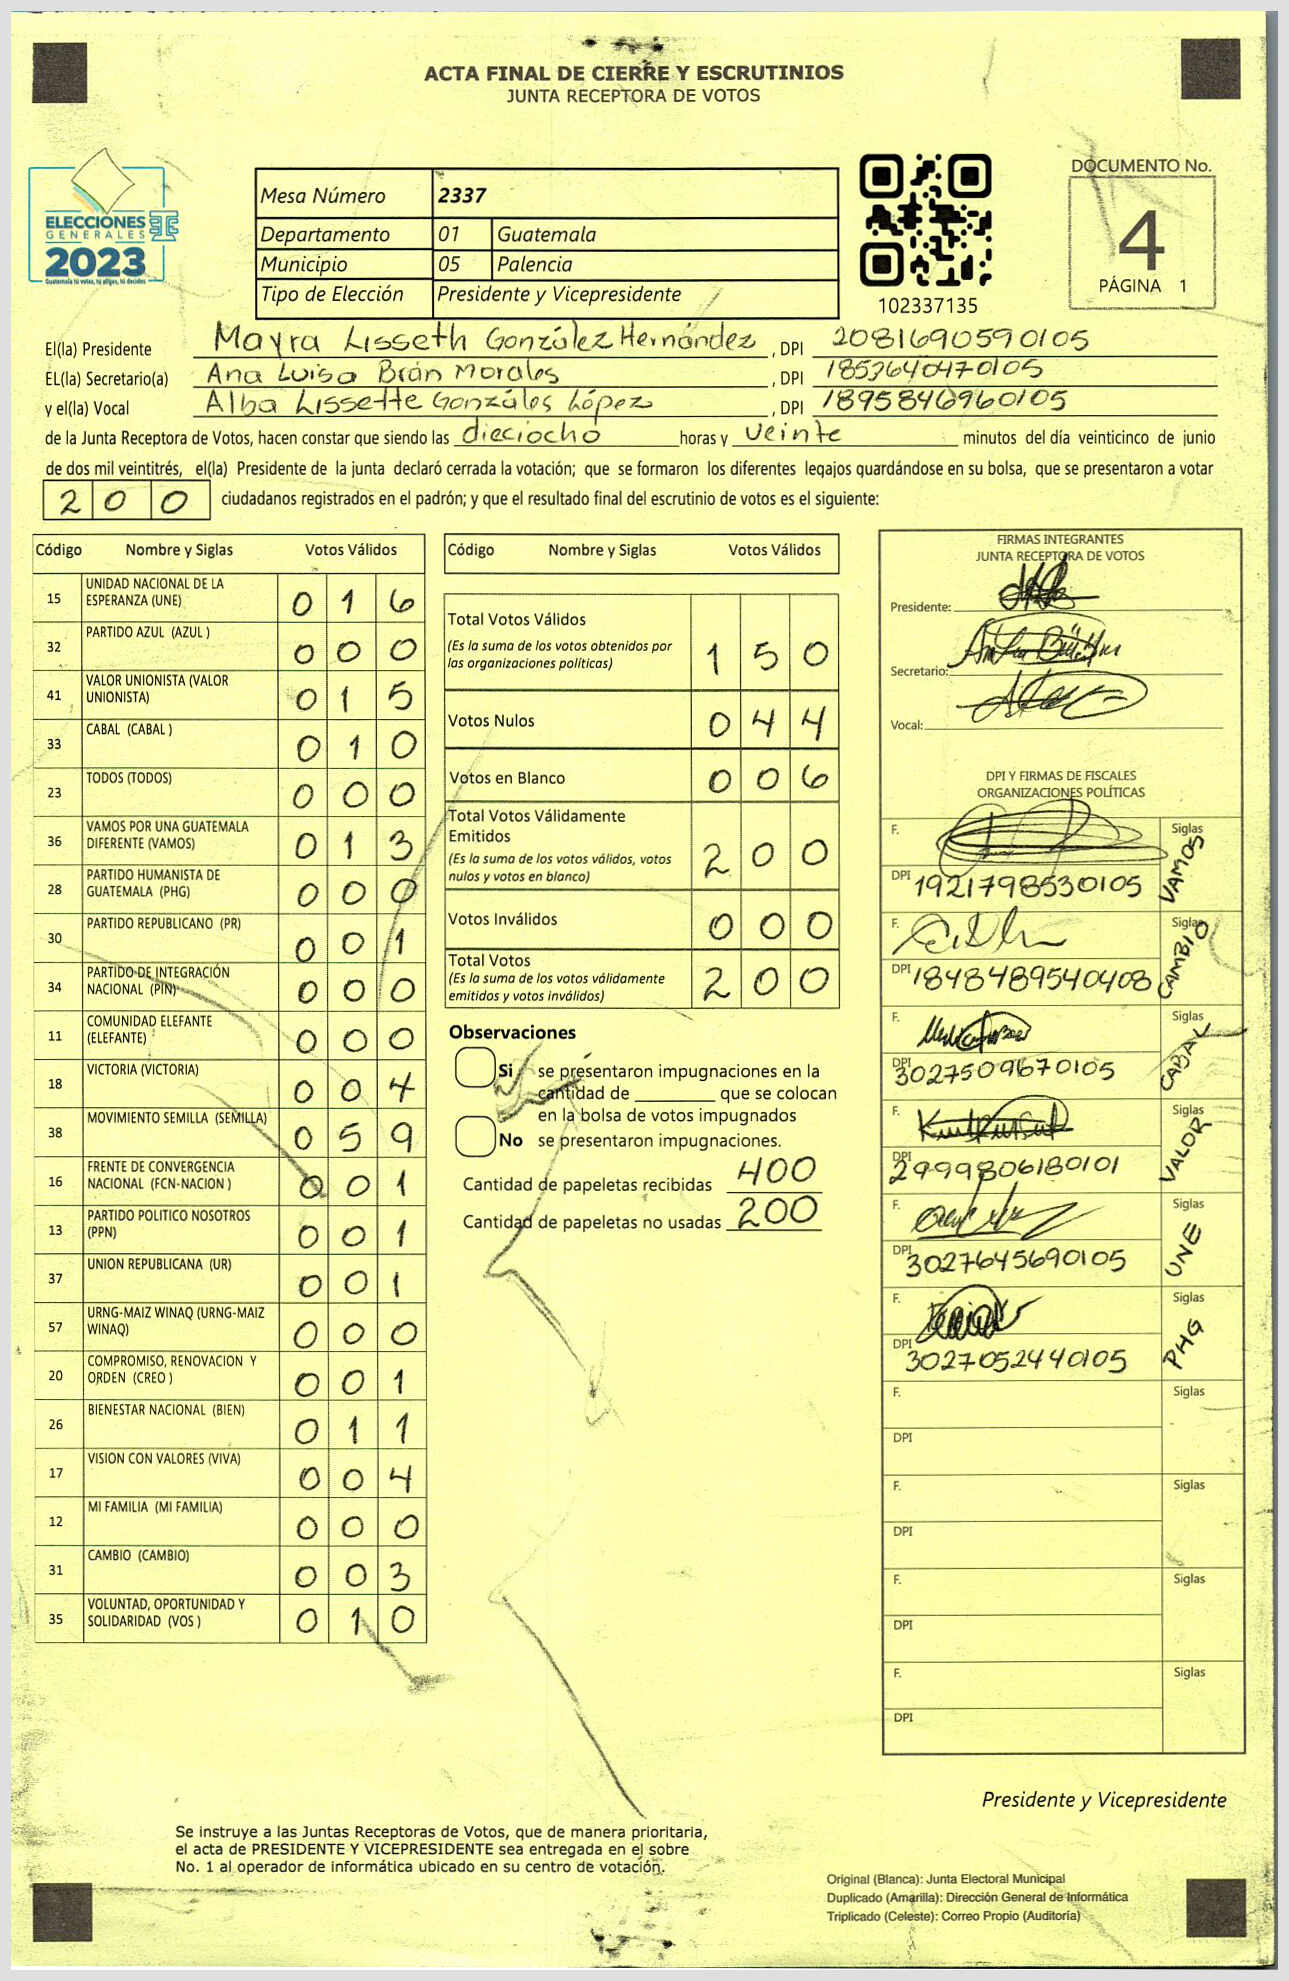 ACTA FINAL DE CIERRE Y ESCRUTINIOS
JUNTA RECEPTORA DE VOTOS
ELECCIONES
GENERALES
2023
Guatemala tú votas, tú eliges, tú decides
Mesa Número 2337
Departamento 01 Guatemala
Municipio 05 Palencia
Tipo de Elección Presidente y Vicepresidente
102337135
DOCUMENTO No.
4
PÁGINA 1
El(la) Presidente Mayra Lisseth González Hernández, DPI 2081690590105
EL(la) Secretario(a) Ana Luisa Brán Morales, DPI 1853640470105
y el(la) Vocal Alba Lissette Gonzáles López, DPI 1895846960105
de la Junta Receptora de Votos, hacen constar que siendo las dieciocho horas y veinte minutos del día veinticinco de junio
de dos mil veintitrés, el(la) Presidente de la junta declaró cerrada la votación; que se formaron los diferentes legajos guardándose en su bolsa, que se presentaron a votar
200 ciudadanos registrados en el padrón; y que el resultado final del escrutinio de votos es el siguiente:
Código Nombre y Siglas Votos Válidos
15 UNIDAD NACIONAL DE LA ESPERANZA (UNE) 016
32 PARTIDO AZUL (AZUL ) 000
41 VALOR UNIONISTA (VALOR UNIONISTA) 015
33 CABAL (CABAL ) 010
23 TODOS (TODOS) 000
36 VAMOS POR UNA GUATEMALA DIFERENTE (VAMOS) 013
28 PARTIDO HUMANISTA DE GUATEMALA (PHG) 000
30 PARTIDO REPUBLICANO (PR) 001
34 PARTIDO DE INTEGRACIÓN NACIONAL (PIN) 000
11 COMUNIDAD ELEFANTE (ELEFANTE) 000
18 VICTORIA (VICTORIA) 004
38 MOVIMIENTO SEMILLA (SEMILLA) 059
16 FRENTE DE CONVERGENCIA NACIONAL (FCN-NACION ) 001
13 PARTIDO POLITICO NOSOTROS (PPN) 001
37 UNION REPUBLICANA (UR) 001
57 URNG-MAIZ WINAQ (URNG-MAIZ WINAQ) 000
20 COMPROMISO, RENOVACION Y ORDEN (CREO ) 001
26 BIENESTAR NACIONAL (BIEN) 011
17 VISION CON VALORES (VIVA) 004
12 MI FAMILIA (MI FAMILIA) 000
31 CAMBIO (CAMBIO) 003
35 VOLUNTAD, OPORTUNIDAD Y SOLIDARIDAD (VOS ) 010
Código Nombre y Siglas Votos Válidos
Total Votos Válidos 150
(Es la suma de los votos obtenidos por
las organizaciones políticas)
Votos Nulos 044
Votos en Blanco 006
Total Votos Válidamente
Emitidos 200
(Es la suma de los votos válidos, votos
nulos y votos en blanco)
Votos Inválidos 000
Total Votos 200
(Es la suma de los votos válidamente
emitidos y votos inválidos)
Observaciones
Si se presentaron impugnaciones en la
cantidad de ________ que se colocan
en la bolsa de votos impugnados
No se presentaron impugnaciones.
Cantidad de papeletas recibidas 400
Cantidad de papeletas no usadas 200
FIRMAS INTEGRANTES
JUNTA RECEPTORA DE VOTOS
Presidente:
Secretario:
Vocal:
DPI Y FIRMAS DE FISCALES
ORGANIZACIONES POLÍTICAS
F. Siglas VAMOS
DPI 1921798530105
F. Siglas CAMBIO
DPI 1848489540408
F. Siglas CABAL
DPI 3027509670105
F. Siglas VALOR
DPI 2999806180101
F. Siglas UNE
DPI 3027645690105
F. Siglas PHG
DPI 3027052440105
F. Siglas
DPI
F. Siglas
DPI
F. Siglas
DPI
F. Siglas
DPI
Presidente y Vicepresidente
Se instruye a las Juntas Receptoras de Votos, que de manera prioritaria,
el acta de PRESIDENTE Y VICEPRESIDENTE sea entregada en el sobre
No. 1 al operador de informática ubicado en su centro de votación.
Original (Blanca): Junta Electoral Municipal
Duplicado (Amarilla): Dirección General de Informática
Triplicado (Celeste): Correo Propio (Auditoría)